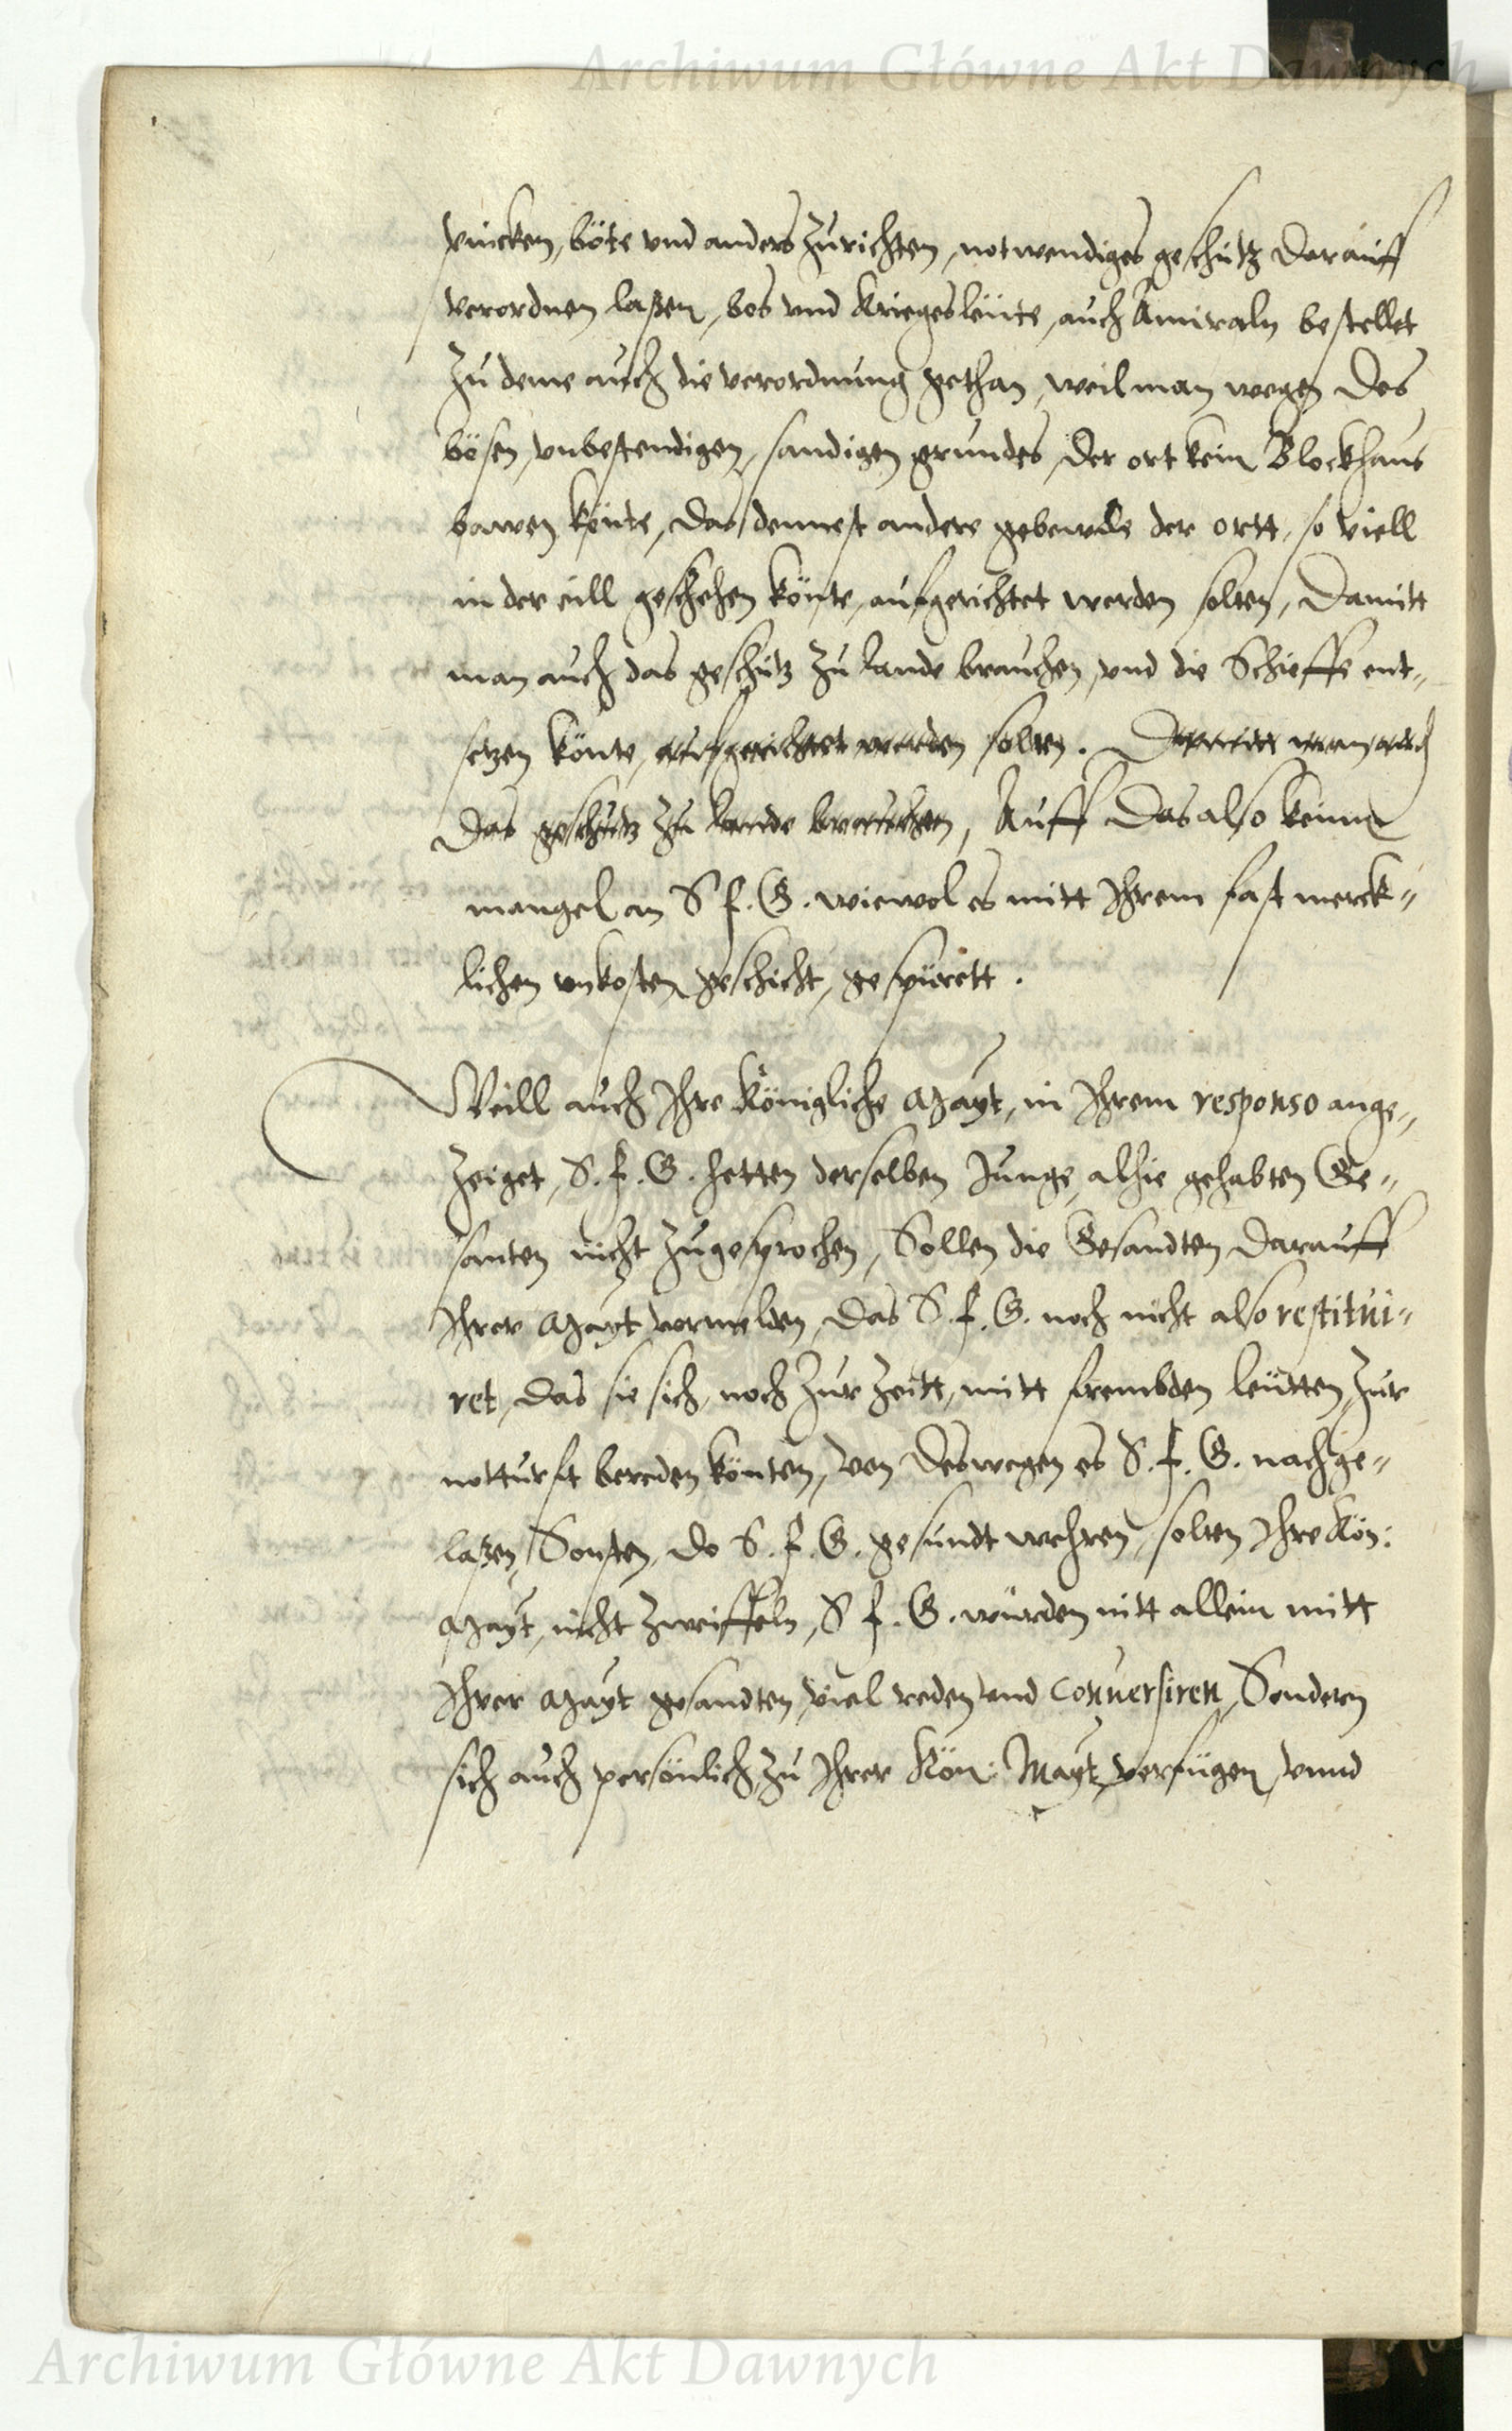 Archiwum Główne Akt Dawnych
pincken, böte vnd anders zurichten, notwendiges geschütz darauff
verordnen laßen, bos vnd Kriegesleüte, auch Amiraln bestellet
zu deme auch die verordnung gethan, weil man wegen des
bösen, vnbestendigen, sandigen grundes, der ort kein Blockhaus
bawen könte, das dennost andere gebewde der ortt, so viell
in der eill geschehen könte, aufgerichtet werden solten, Damitt
man auch das geschütz zu lande brauchen, vnd die Schieffe ent-
setzen könte, aufgerichtet werden solten. Damitt man auch
das geschutz zu lande brauchen, Auff das also keinn
mangel an S f. G. wiewol es mitt Ihrem fast merck-
lichen vnkosten geschicht, gespürett.
Weill auch Ihre Königliche Mayt, in Ihrem responso ange-
zeiget, S. f. G. hetten derselben Junge, alhie gehabten Ge-
santen nicht zugesprochen, Sollen die Gesandten darauff
Ihrer Mayt vermelden, das S. f. G. noch nicht also restitui-
ret, das sie sich, noch zur zeitt, mitt frembden leütten, zur
notturft bereden könten, von deswegen es S. f. G. nachge-
laßen, Sonsten, do S. f. G. gesundt wehren, solten Ihre Kön:
Mayt, nicht zweiffeln, S f. G. würden nitt allein mitt
Ihrer Mayt gesandten, viel reden vnd conuersiren, Sondern
sich auch persönlich, zu Ihrer Kön: Mayt, verfügen, vnnd
Archiwum Główne Akt Dawnych